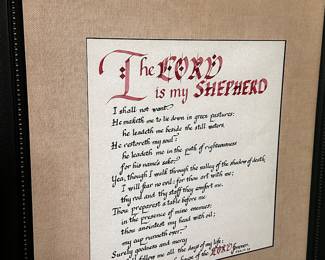 The LORD
is my SHEPHERD
I shall not want.
He maketh me to lie down in green pastures:
he leadeth me beside the still waters.
He restoreth my soul:
he leadeth me in the path of righteousness
for his name's sake:
Yea, though I walk through the valley of the shadow of death,
I will fear no evil: for thou art with me;
thy rod and thy staff they comfort me.
Thou preparest a table before me
in the presence of mine enemies:
thou anointest my head with oil;
my cup runneth over.
Surely goodness and mercy
follow me all the days of my life:
of the LORD forever.